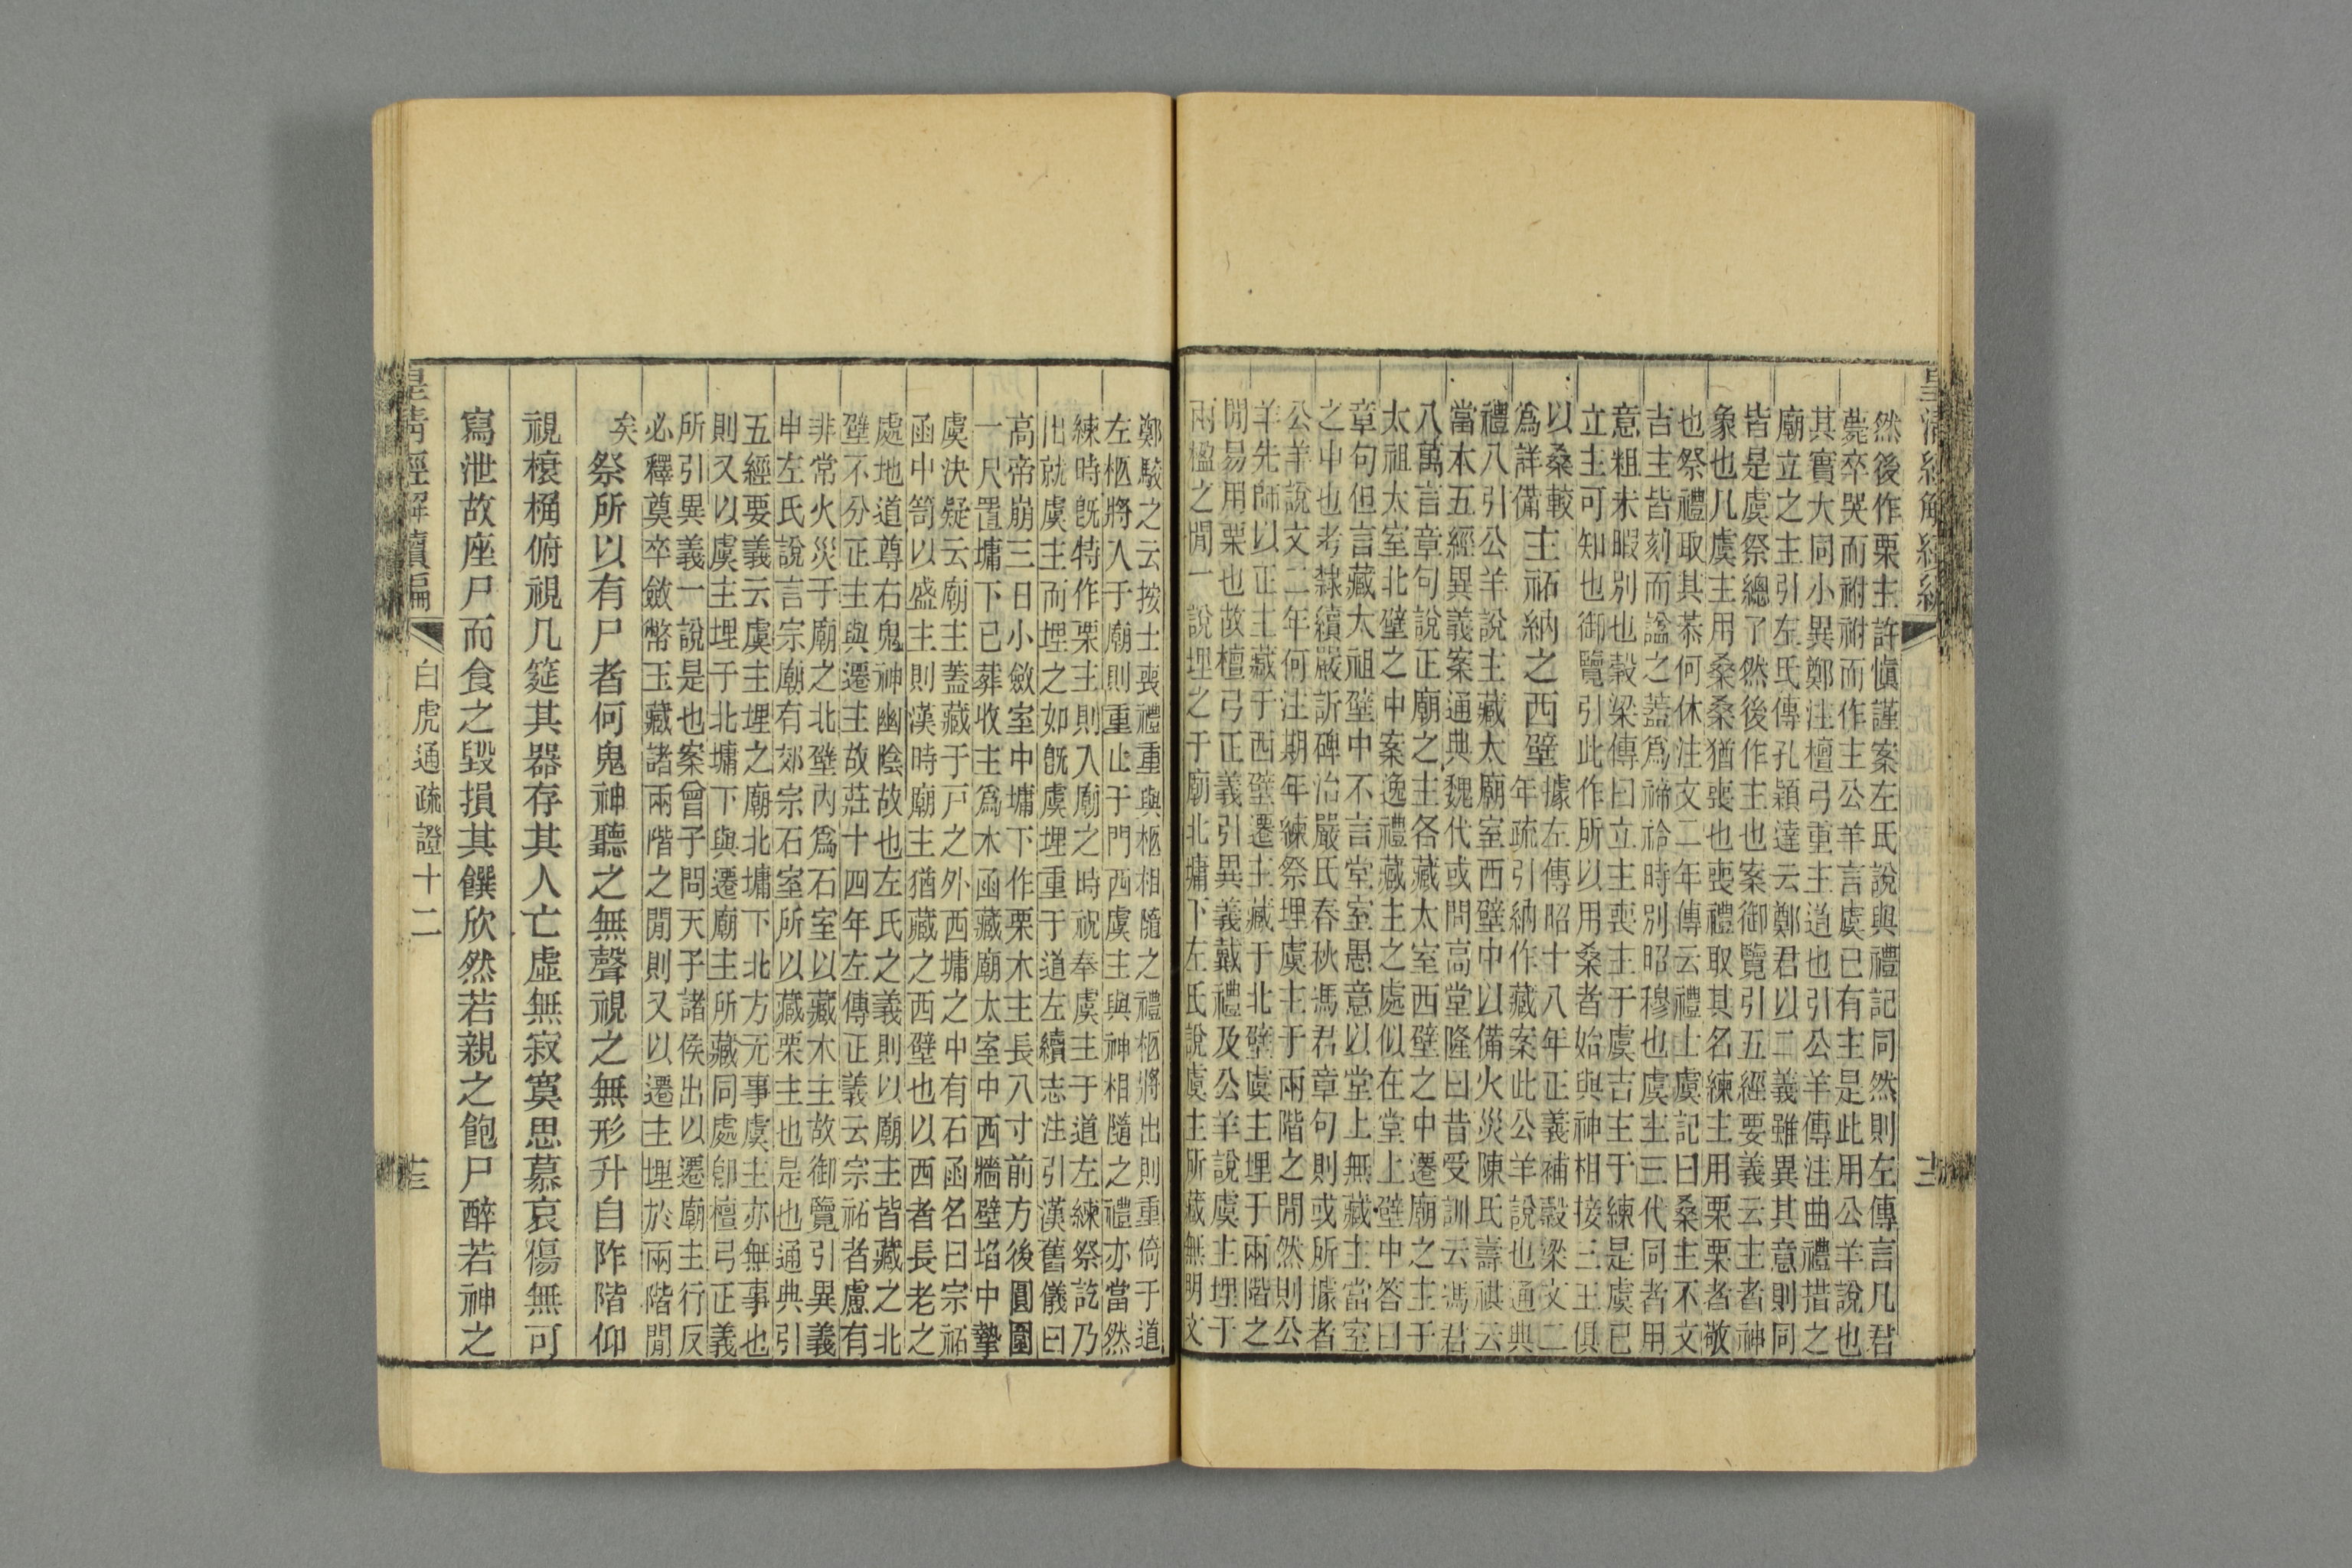 皇清經解續編
然後作栗主許愼謹案左氏說與禮記同然則左傳言凡君
薨卒哭而祔祔而作主公羊言虞已有主是此用公羊說也
其實大同小異鄭注檀弓重主道也引公羊傳注曲禮措之
廟立之主引左氏傳孔穎達云鄭君以二義雖異其意則同
皆是虞祭總了然後作主也案御覽引五經要義云主者神
象也凡虞主用桑桑猶喪也喪禮取其名練主用栗栗者敬
也祭禮取其恭何休注文二年傳云禮士虞記曰桑主不文
吉主皆刻而諡之蓋爲禘祫時別昭穆也虞主三代同者用
意粗未暇別也穀梁傳曰立主喪主于虞吉主于練是虞已
立主可知也御覽引此作所以用桑者始與神相接三王俱
以桑較
爲詳備
主祏納之西壁
據左傳昭十八年正義補穀梁文二
年疏引納作藏案此公羊說也通典
禮八引公羊說主藏太廟室西壁中以備火災陳氏壽祺云
當本五經異義案通典魏代或問高堂隆曰昔受訓云馮君
八萬言章句說正廟之主各藏太室西壁之中遷廟之主于
太祖太室北壁之中案逸禮藏主之處似在堂上壁中答曰
章句但言藏太祖壁中不言堂室愚意以堂上無藏主當室
之中也考隸續嚴訢碑治嚴氏春秋馮君章句則或所據者
公羊說文二年何注期年練祭埋虞主于兩階之閒然則公
羊先師以正主藏于西壁遷主藏于北壁虞主埋于兩階之
閒易用栗也故檀弓正義引異義戴禮及公羊說虞主埋于
兩楹之閒一說埋之于廟北墉下左氏說虞主所藏無明文
鄭駮之云按士喪禮重與柩相隨之禮柩將出則重倚于道
左柩將入于廟則重止于門西虞主與神相隨之禮亦當然
練時旣特作栗主則入廟之時祝奉虞主于道左練祭訖乃
出就虞主而埋之如旣虞埋重于道左續志注引漢舊儀曰
高帝崩三日小斂室中墉下作栗木主長八寸前方後圓圍
一尺置墉下已葬收主爲木函藏廟太室中西牆壁埳中摯
虞決疑云廟主蓋藏于戸之外西墉之中有石函名曰宗祏
函中笥以盛主則漢時廟主猶藏之西壁也以西者長老之
處地道尊右鬼神幽陰故也左氏之義則以廟主皆藏之北
壁不分正主與遷主故莊十四年左傳正義云宗祏者慮有
非常火災于廟之北壁內爲石室以藏木主故御覽引異義
申左氏說言宗廟有郊宗石室所以藏栗主也是也通典引
五經要義云虞主埋之廟北墉下北方无事虞主亦無事也
則又以虞主埋于北墉下與遷廟主所藏同處卽檀弓正義
所引異義一說是也案曾子問天子諸侯出以遷廟主行反
必釋奠卒斂幣玉藏諸兩階之閒則又以遷主埋於兩階閒
矣
祭所以有尸者何鬼神聽之無聲視之無形升自阼階仰
視榱桷俯視几筵其器存其人亡虛無寂寞思慕哀傷無可
寫泄故座尸而食之毀損其饌欣然若親之飽尸醉若神之
皇清經解續編
白虎通疏證十二